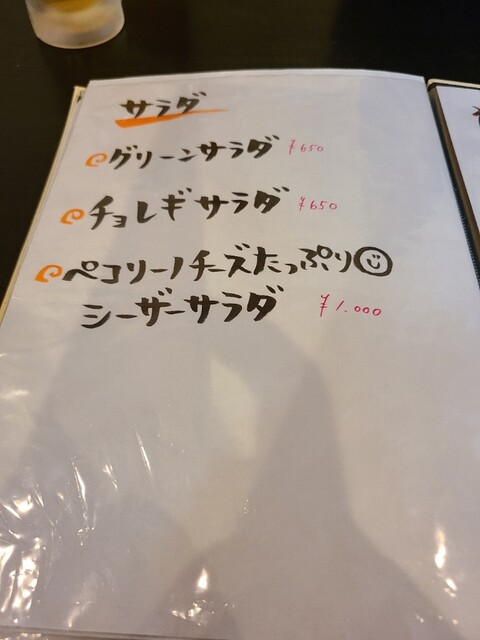 サラダ
グリーンサラダ ¥650
チョレギサラダ ¥650
ペコリーノチーズたっぷり
シーザーサラダ ¥1.000